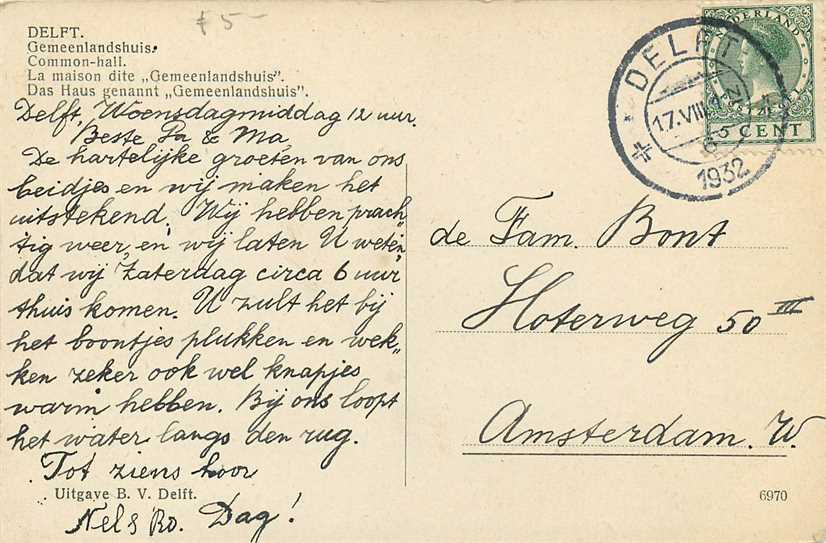 ƒ 5-
DELFT.
Gemeenlandshuis.
Common-hall.
La maison dite „Gemeenlandshuis".
Das Haus genannt „Gemeenlandshuis".
Delft, Woensdagmiddag 12 uur.
Beste Pa & Ma
De hartelijke groeten van ons
beidjes en wij maken het
uitstekend. Wij hebben prach„
tig weer, en wij laten U weten
dat wij Zaterdag circa 6 uur
thuis komen. U zult het bij
het boontjes plukken en wek„
ken zeker ook wel knapjes
warm hebben. Bij ons loopt
het water langs den rug.
Tot ziens hoor
Uitgave B. V. Delft.
Nel & Ro. Dag!
NEDERLAND
POSTZEGEL
5 CENT
DELFT
17.VIII
6
1932
de Fam. Bont
Hoterweg 50 III
Amsterdam. W.
6970